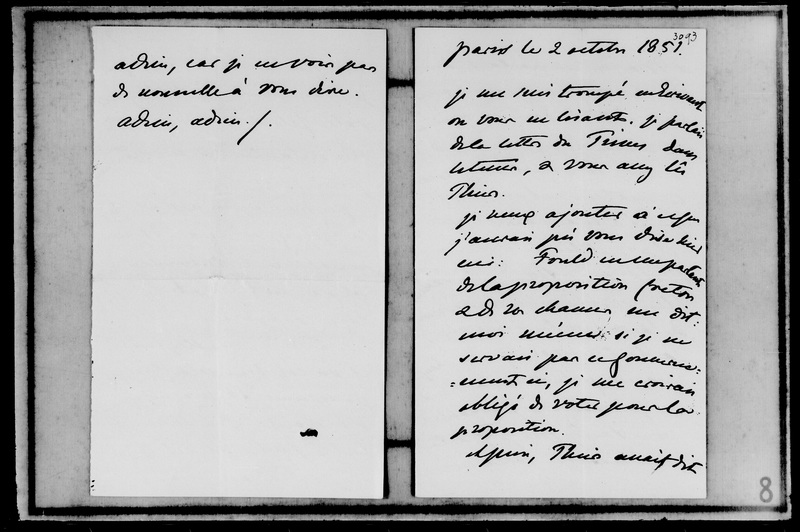 adieu, car je ne vois pas
de nouvelle à vous dire.
adieu, adieu./.
3093
paris le 2 octobre 1851.
je me suis trompé
ou vous en lisant. je parlais
de la lettre du Times dans
, & vous avez lû
Thiers.
je veux ajouter à ce que
j'aurais pû vous dire hier
ceci: Fould en me parlant
de la proposition Creton
& de ses chances me dit:
moi même si je ne
servais pas ce gouverne=
=ment ci, je me croirais
obligé de voter pour la
proposition.
, Thiers avait dit
8